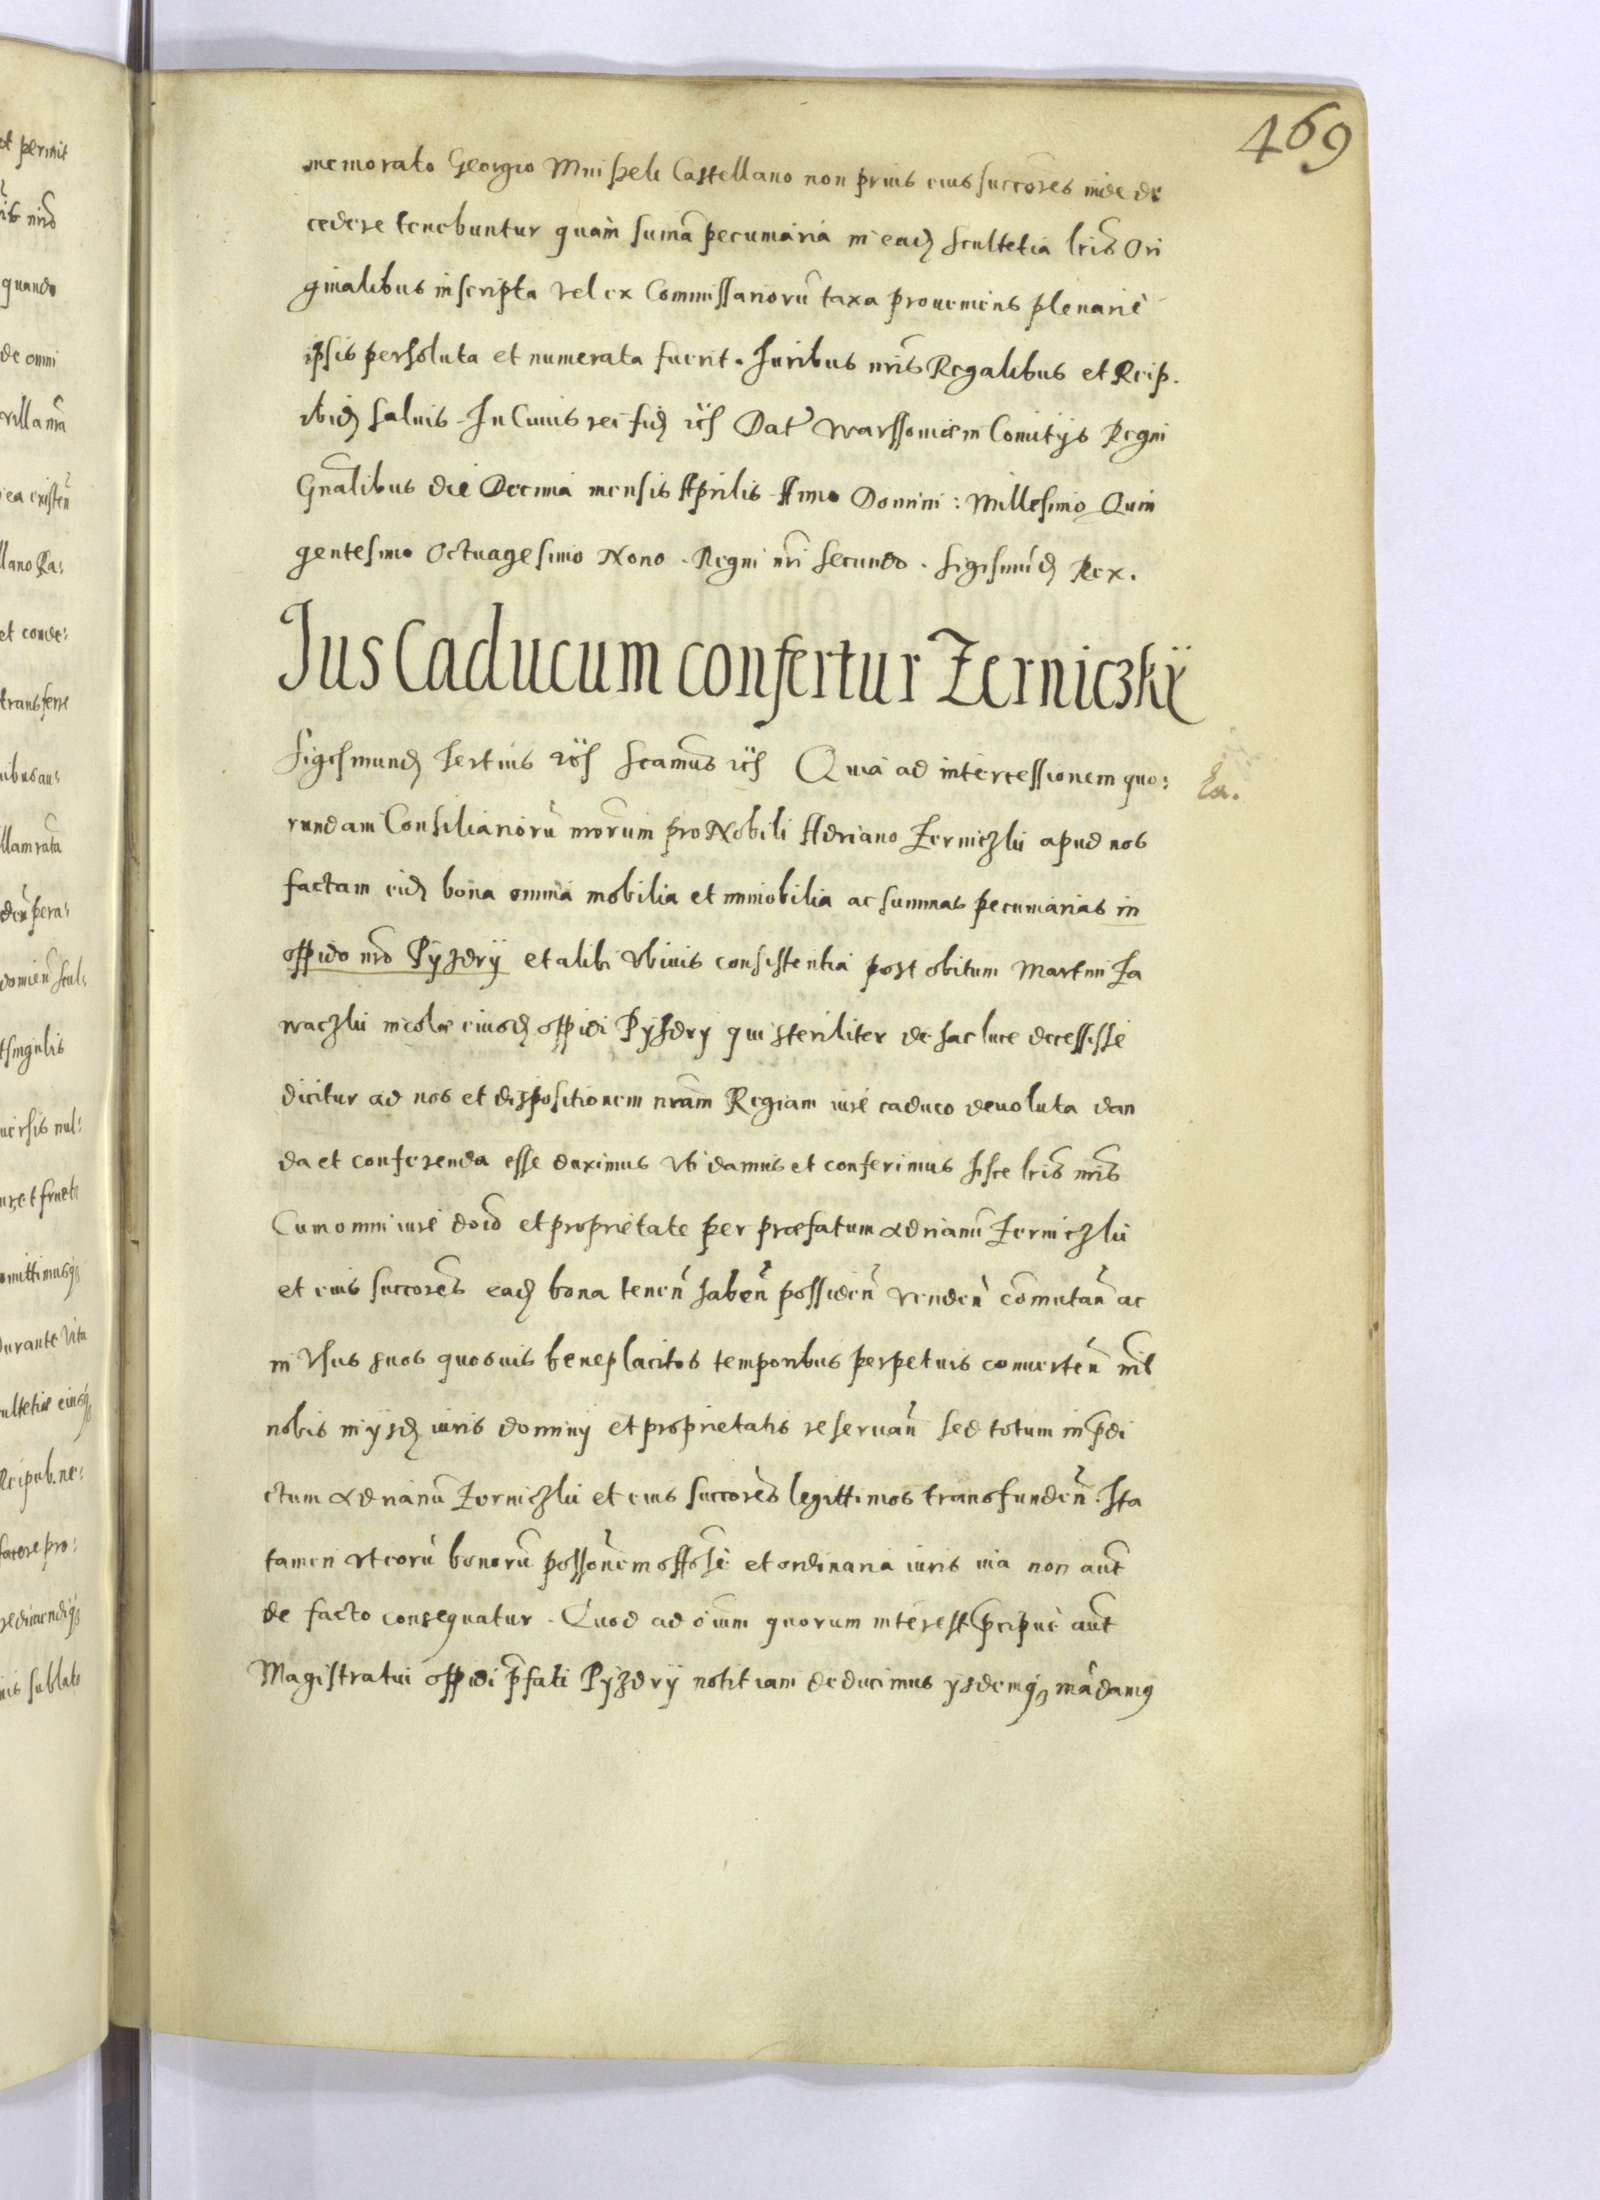 469
memorato Georgio Mnishek Castellano non prius eius succores inde de
cedere tenebuntur quam suma pecuniaria in ead Scultetia lris Ori
ginalibus inscripta vel ex Commissarioru taxa proueniens plenarie
ipsis persoluta et numerata fuerit. Juribus nris Regalibus et Reip.
ibid saluis. In Cuius rei fid etc Dat Warssouiae in Comitijs Regni
Gnalibus die Decima mensis Aprilis Anno Domini: Millesimo Quin
gentesimo Octuagesimo Nono. Regni nri Secundo. Sigismud Rex.
Jus Caducum confertur Zerniczkÿ
Sigismund Tertius etc Scamus etc Quia ad intercessionem quo:
rundam Consiliarioru nrorum pro Nobili Adriano Zerniczki apud nos
factam eid bona omnia mobilia et immobilia ac summas pecuniarias in
oppido nro Pyzdrÿ et alibi vbiuis consistentia post obitum Martini Za
waczki incolae eiusd oppidi Pyzdry qui steriliter de hac luce decessisse
dicitur ad nos et dispositionem nram Regiam iure caduco deuoluta dan
da et conferenda esse duximus vti damus et conferimus hisce lris nris
Cum omni iure doio et proprietate per praefatum Adrianu Zerniczki
et eius succores ead bona tenen haben possiden venden comutan ac
in vsus suos quosuis beneplacitos temporibus perpetuis conuerten nil
nobis in ijsd iuris dominij et proprietatis reseruan sed totum in pdi
ctum Adrianu Zerniczki et eius succores legittimos transfunden. Ita
tamen vt eoru bonoru possonem offose et ordinaria iuris via non aut
de facto consequatur. Quod ad oium quorum interest pcipue aut
Magistratui oppidi pfati Pyzdrÿ notitiam deducimus ijsdemq madamus